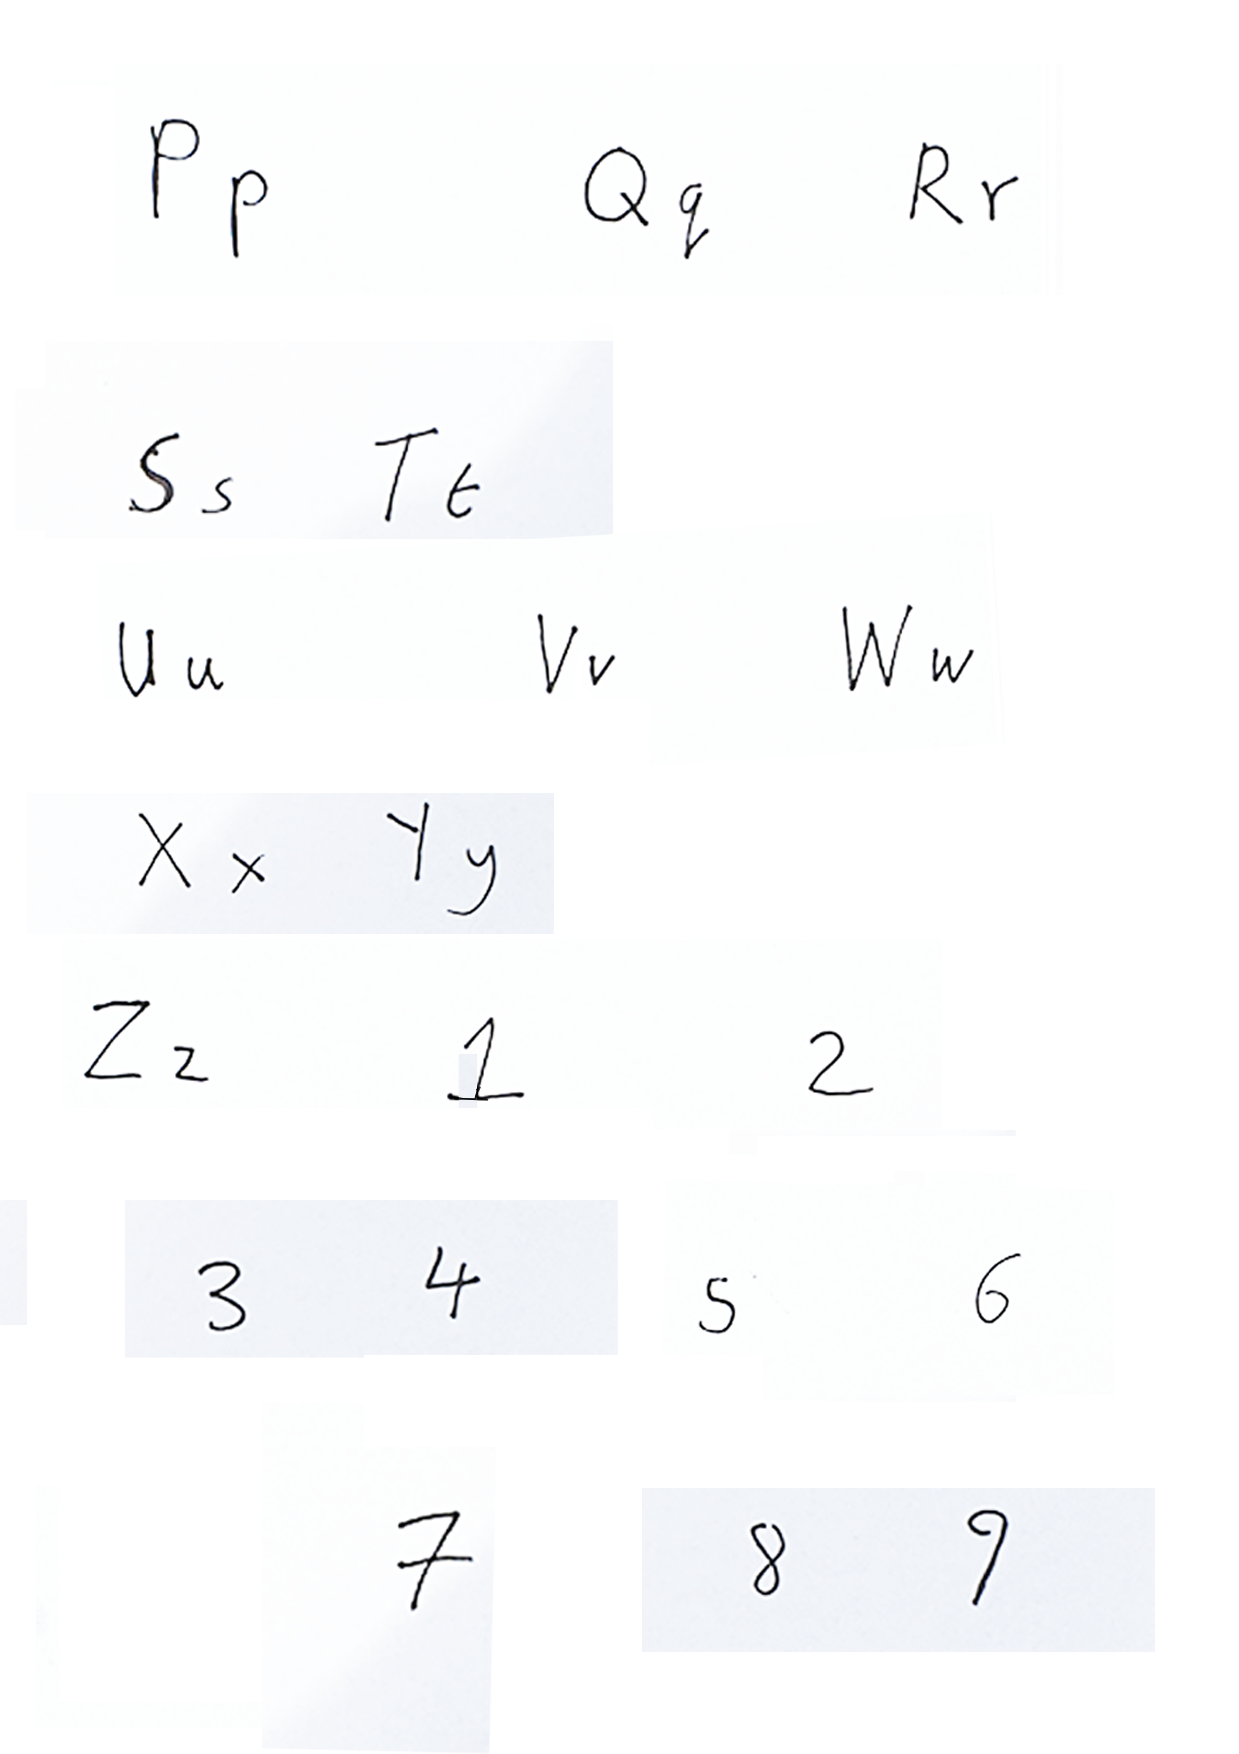 Pp Qq Rr
Ss Tt
Uu Vv Ww
Xx Yy
Zz 1 2
3 4 5 6
7 8 9